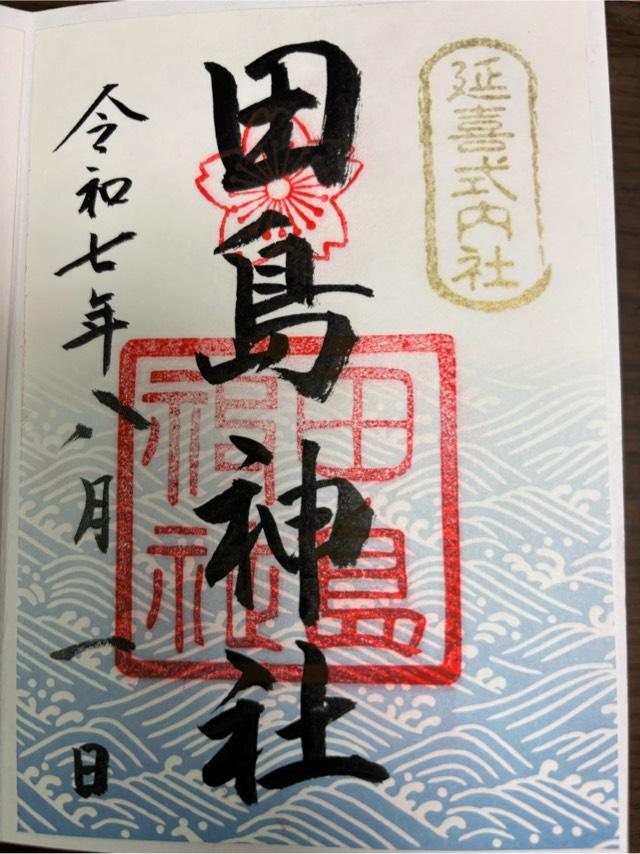 延喜式内社
田島神社
田島神社
令和七年八月一日